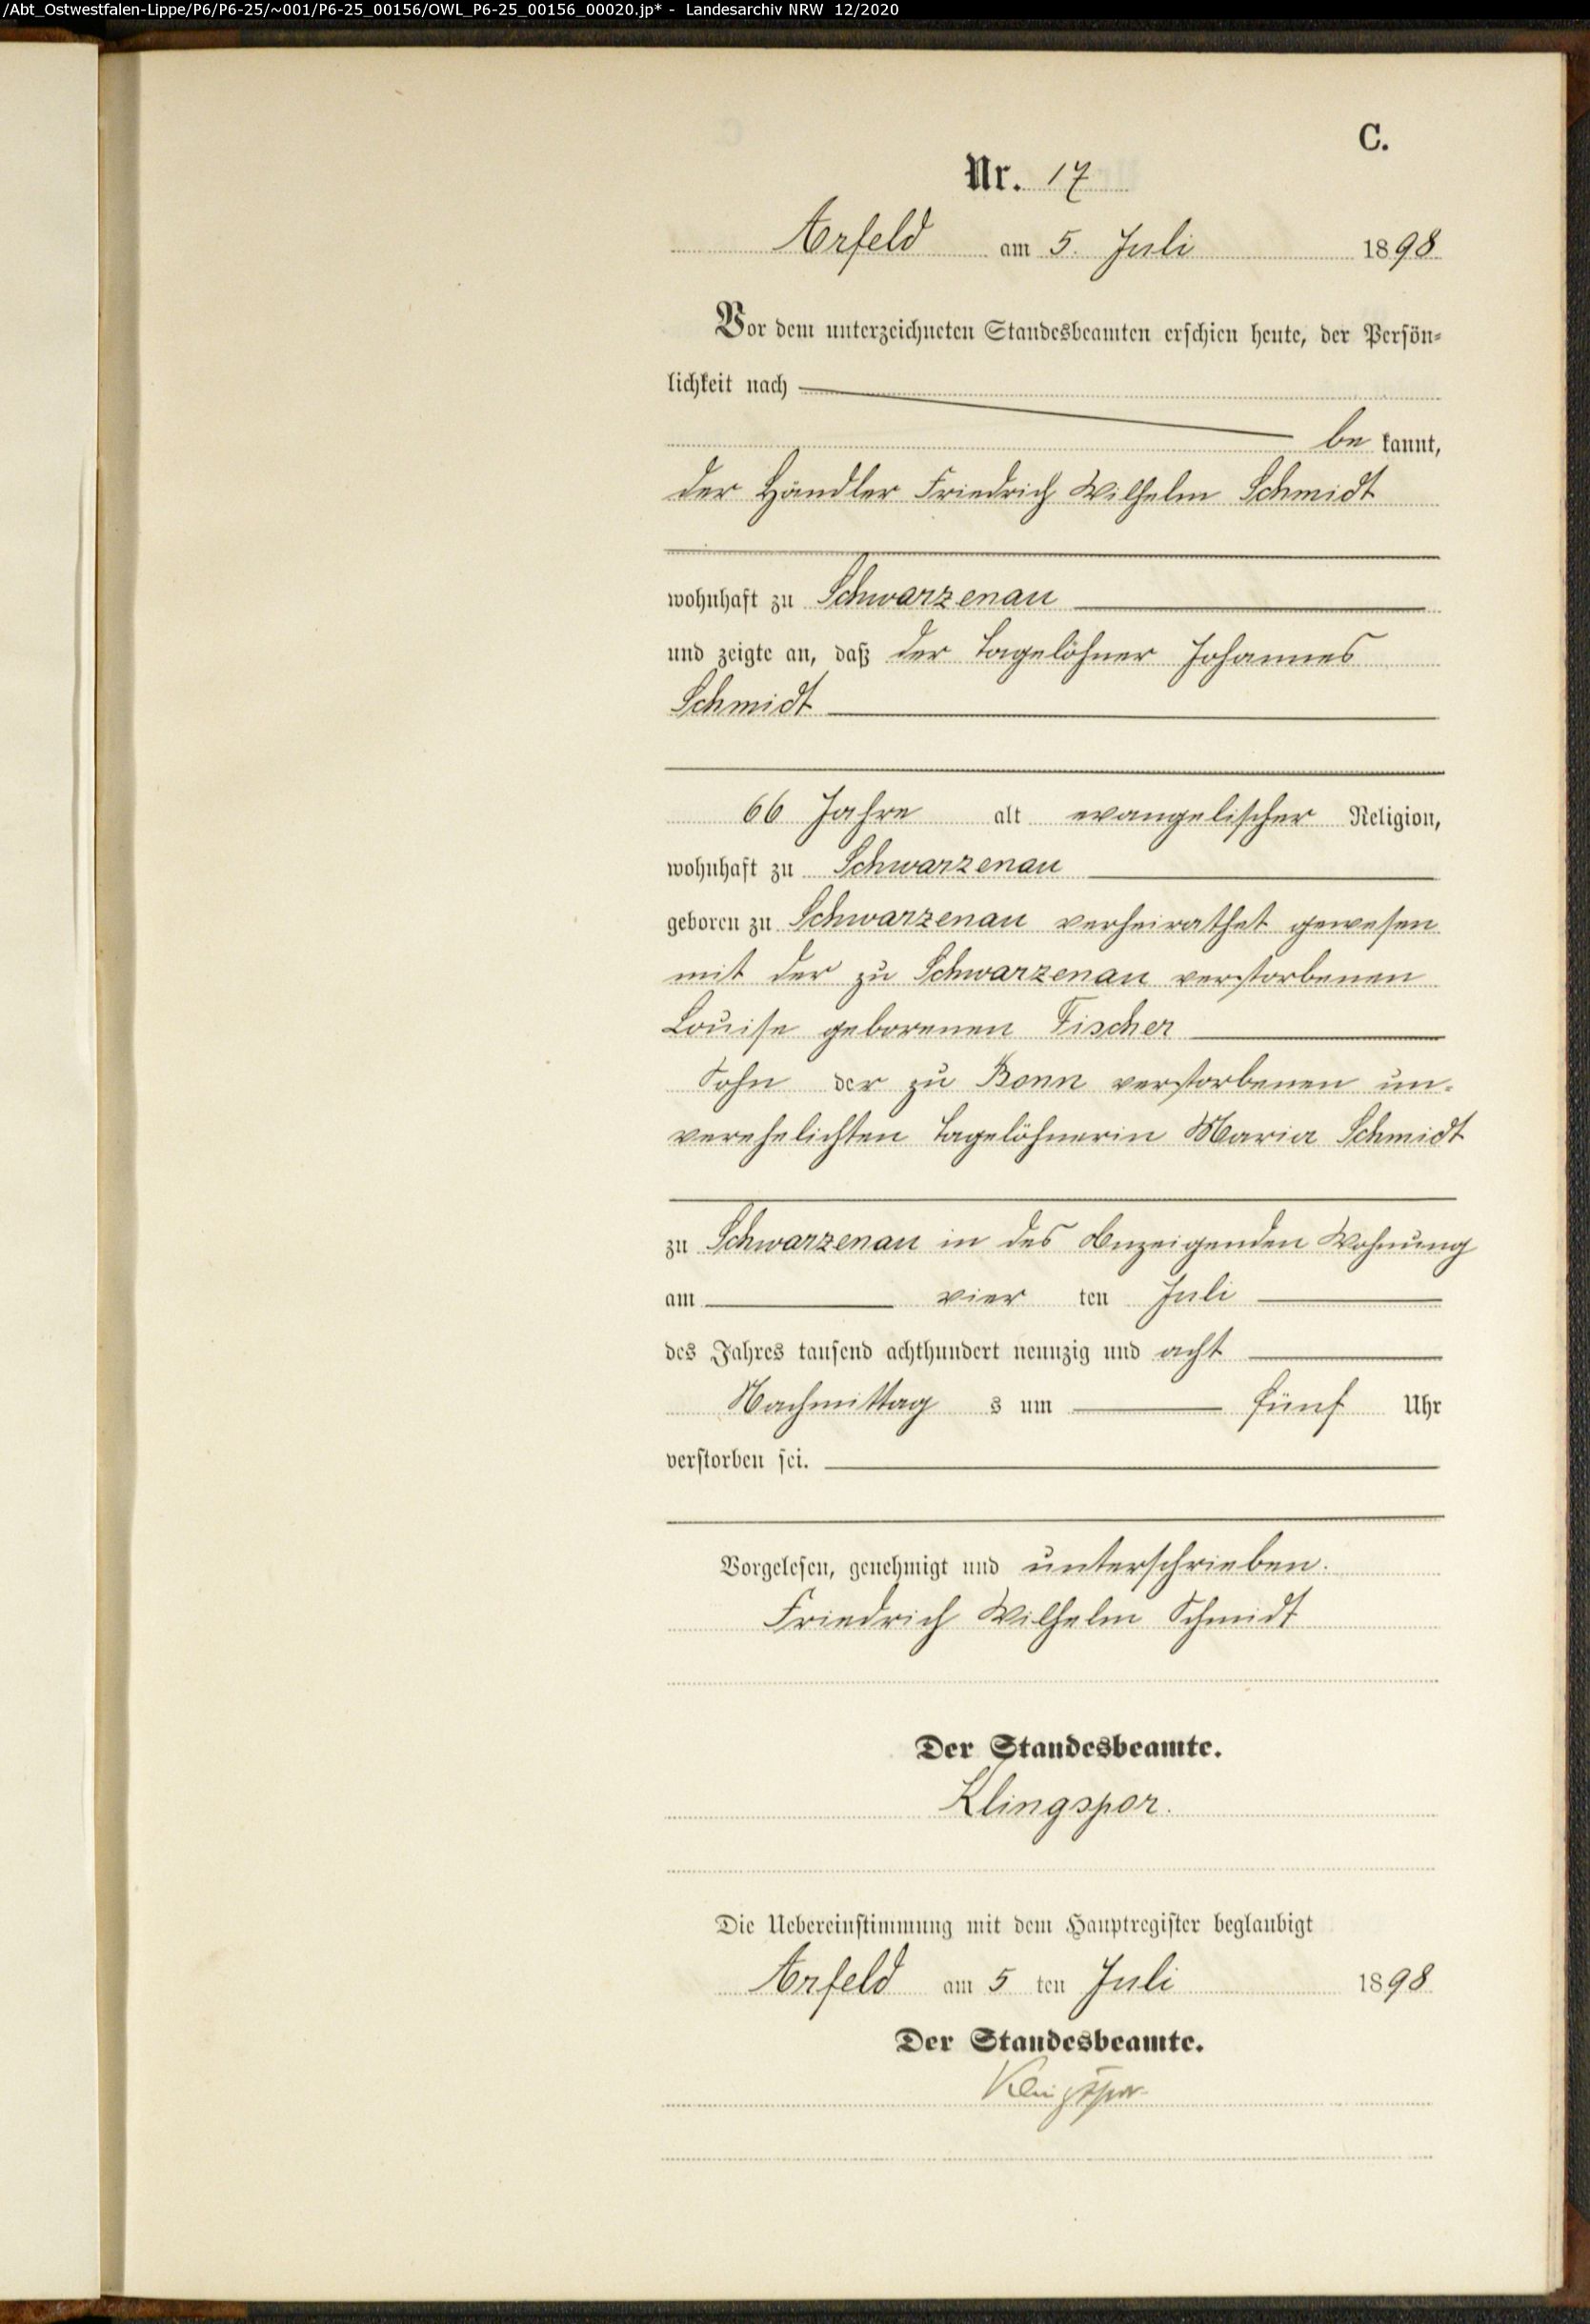 /Abt_Ostwestfalen-Lippe/P6/P6-25/~001/P6-25_00156/OWL_P6-25_00156_00020.jp* - Landesarchiv NRW 12/2020
C.
Nr. 17
Arfeld am 5. Juli 1898
Vor dem unterzeichneten Standesbeamten erschien heute, der Persön-
lichkeit nach
be kannt,
der Händler Friedrich Wilhelm Schmidt
wohnhaft zu Schwarzenau
und zeigte an, daß der Tagelöhner Johannes
Schmidt
66 Jahre alt evangelischer Religion,
wohnhaft zu Schwarzenau
geboren zu Schwarzenau verheirathet gewesen
mit der zu Schwarzenau verstorbenen
Louise geborenen Fischer
Sohn der zu Bonn verstorbenen un-
verehelichten Tagelöhnerin Maria Schmidt
zu Schwarzenau in des Anzeigenden Wohnung
am vier ten Juli
des Jahres tausend achthundert neunzig und acht
Nachmittag s um fünf Uhr
verstorben sei.
Vorgelesen, genehmigt und unterschrieben.
Friedrich Wilhelm Schmidt
Der Standesbeamte.
Klingspor.
Die Uebereinstimmung mit dem Hauptregister beglaubigt
Arfeld am 5 ten Juli 1898
Der Standesbeamte.
Klingspor